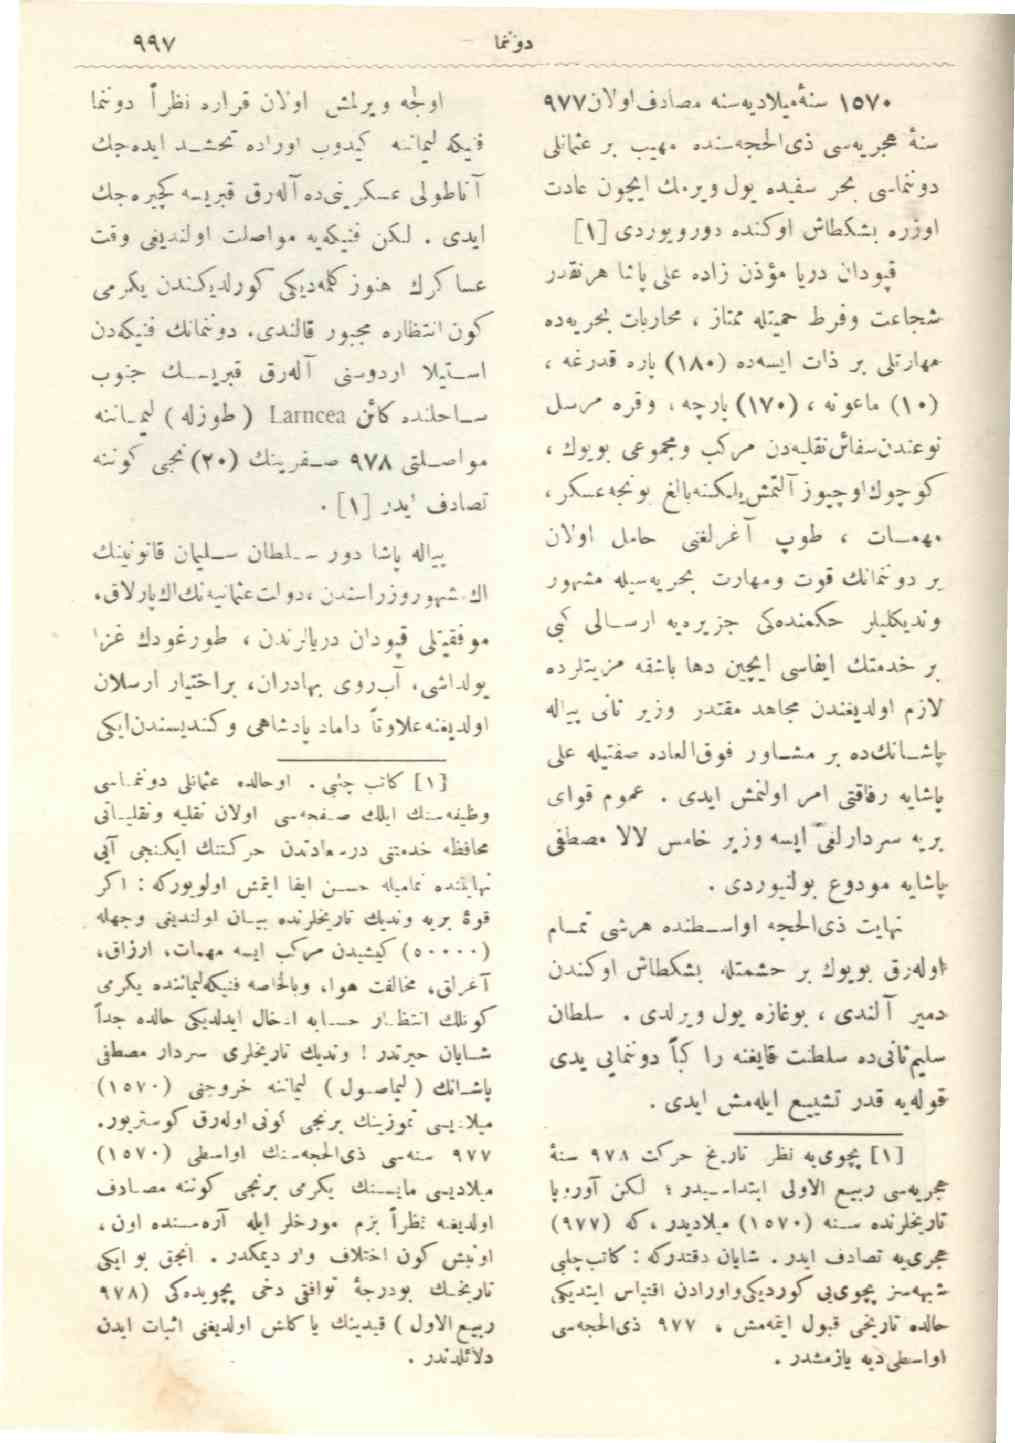 دونما
٩٩٧
١٥٧٠ سنهٔ ميلاديه‌سنه مصادف اولان ٩٧٧
سنهٔ هجريه‌سی ذی‌الحجه‌سنده مهيب بر عثمانلی
دونماسی بحر سفيده يول ويرمك ايچون عادت
اوزره بشكطاش اوكنده دورويوردی [١]
قپودان دريا مؤذن زاده علی پاشا هرنقدر
شجاعت وفرط حميتله ممتاز ، محاربات بحريه‌ده
مهارتلی بر ذات ايسه‌ده (١٨٠) پاره قدرغه ،
(١٠) ماعونه ، (١٧٠) پارچه ، وقره مرسل
نوعندن سفائن نقليه‌دن مركب ومجموعی بويوك ،
كوچوك اوچيوز آلتمش يلكنه بالغ بونجه عسكر ،
مهمات ، طوپ آغرلغنی حامل اولان
بر دونمانك قوت ومهارت بحريه‌سيله مشهور
ونديكليلر حكمنده‌كی جزيره‌يه ارسالی كبی
بر خدمتك ايفاسی ايچين دها باشقه مزيتلرده
لازم اولديغندن مجاهد مقتدر وزير ثانی پياله
پاشانك‌ده بر مشاور فوق‌العاده صفتيله علی
پاشايه رفاقتی امر اولنمش ايدی . عموم قوای
بريه سردارلغی ايسه وزير خامس لالا مصطفی
پاشايه مودوع بولنيوردی .
نهايت ذی‌الحجه اواسطنده هرشی تمام
اوله‌رق بويوك بر حشمتله بشكطاش اوكندن
دمير آلندی ، بوغازه يول ويرلدی . سلطان
سليم ثانی‌ده سلطنت قايغنه را كباً دونمايی يدی
قوله‌يه قدر تشييع ايله‌مش ايدی .
[١] پچوی‌يه نظر تاريخ حركت ٩٧٨ سنهٔ
هجريه‌سی ربيع الاولی ابتداسيدر ؛ لكن آوروپا
تاريخلرنده سنه (١٥٧٠) ميلاديدر ، كه (٩٧٧)
هجری‌يه تصادف ايدر . شايان دقتدركه : كاتب چلبی
شبهه‌سز پچوی‌يی كورديكی واورادن اقتباس ايتديكی
حالده تاريخی قبول ايتمه‌مش ، ٩٧٧ ذی‌الحجه‌سی
اواسطی ديه يازمشدر .
اولجه ويرلمش اولان قراره نظراً دوننما
فنيكه ليماننه كيدوب اوراده تحشد ايده‌جك
آناطولی عسكرينی‌ده آله‌رق قبريسه كچيره‌جك
ايدی . لكن فنيكه‌يه مواصلت اولنديغی وقت
عساكرك هنوز كلمه‌ديكی كورلديكندن يكرمی
كون انتظاره مجبور قالندی. دوننمانك فنيكه‌دن
استيلا اردوسنی آله‌رق قبريسك جنوب
ساحلنده كائن Larncea ( طوزله ) ليماننه
مواصلتی ٩٧٨ صفرينك (٢٠) نجی كوننه
تصادف ايدر [١] .
پياله پاشا دور سلطان سليمان قانونينك
اك مشهور وزراسندن ، دولت عثمانيه‌نك اك پارلاق ،
موفقيتلی قپودان دريالرندن ، طورغودك غزا
يولداشی، آب‌روی بهادران، براختيار ارسلان
اولديغنه علاوتاً داماد پادشاهی وكنديسندن ايكی
[١] كاتب چلبی . اوحالده عثمانلی دونماسی
وظيفه‌سنك ايلك صفحه‌سی اولان نقليه ونقلياتی
محافظه خدمتنی درسعادتدن حركتنك ايكنجی آيی
نهايتنده تماميله حسن ايفا ايتمش اولويوركه : اكر
قوهٔ بريه ونديك تاريخلرنده بيان اولنديغی وجهله
(٥٠٠٠٠) كيشيدن مركب ايسه مهمات، ارزاق،
آغراق، مخالفت هوا، وبالخاصه فنيكه ليماننده يكرمی
كونلك انتظار حسابه ادخال ايدلديكی حالده جداً
شايان حيرتدر ! ونديك تاريخلری سردار مصطفی
پاشانك ( ليماصول ) ليماننه خروجنی (١٥٧٠)
ميلاديسی تموزينك برنجی كونی اوله‌رق كوستريور.
٩٧٧ سنه‌سی ذی‌الحجه‌سنك اواسطی (١٥٧٠)
ميلاديسی مايسنك يكرمی برنجی كوننه مصادف
اولديغنه نظراً بزم مورخلر ايله آره‌سنده اون ،
اونبش كون اختلاف وار ديمكدر . انجق بو ايكی
تاريخك بودرجهٔ توافقی دخی پچويده‌كی (٩٧٨
ربيع الاول) قيدينك ياكلش اولديغنی اثبات ايدن
دلائلدندر .